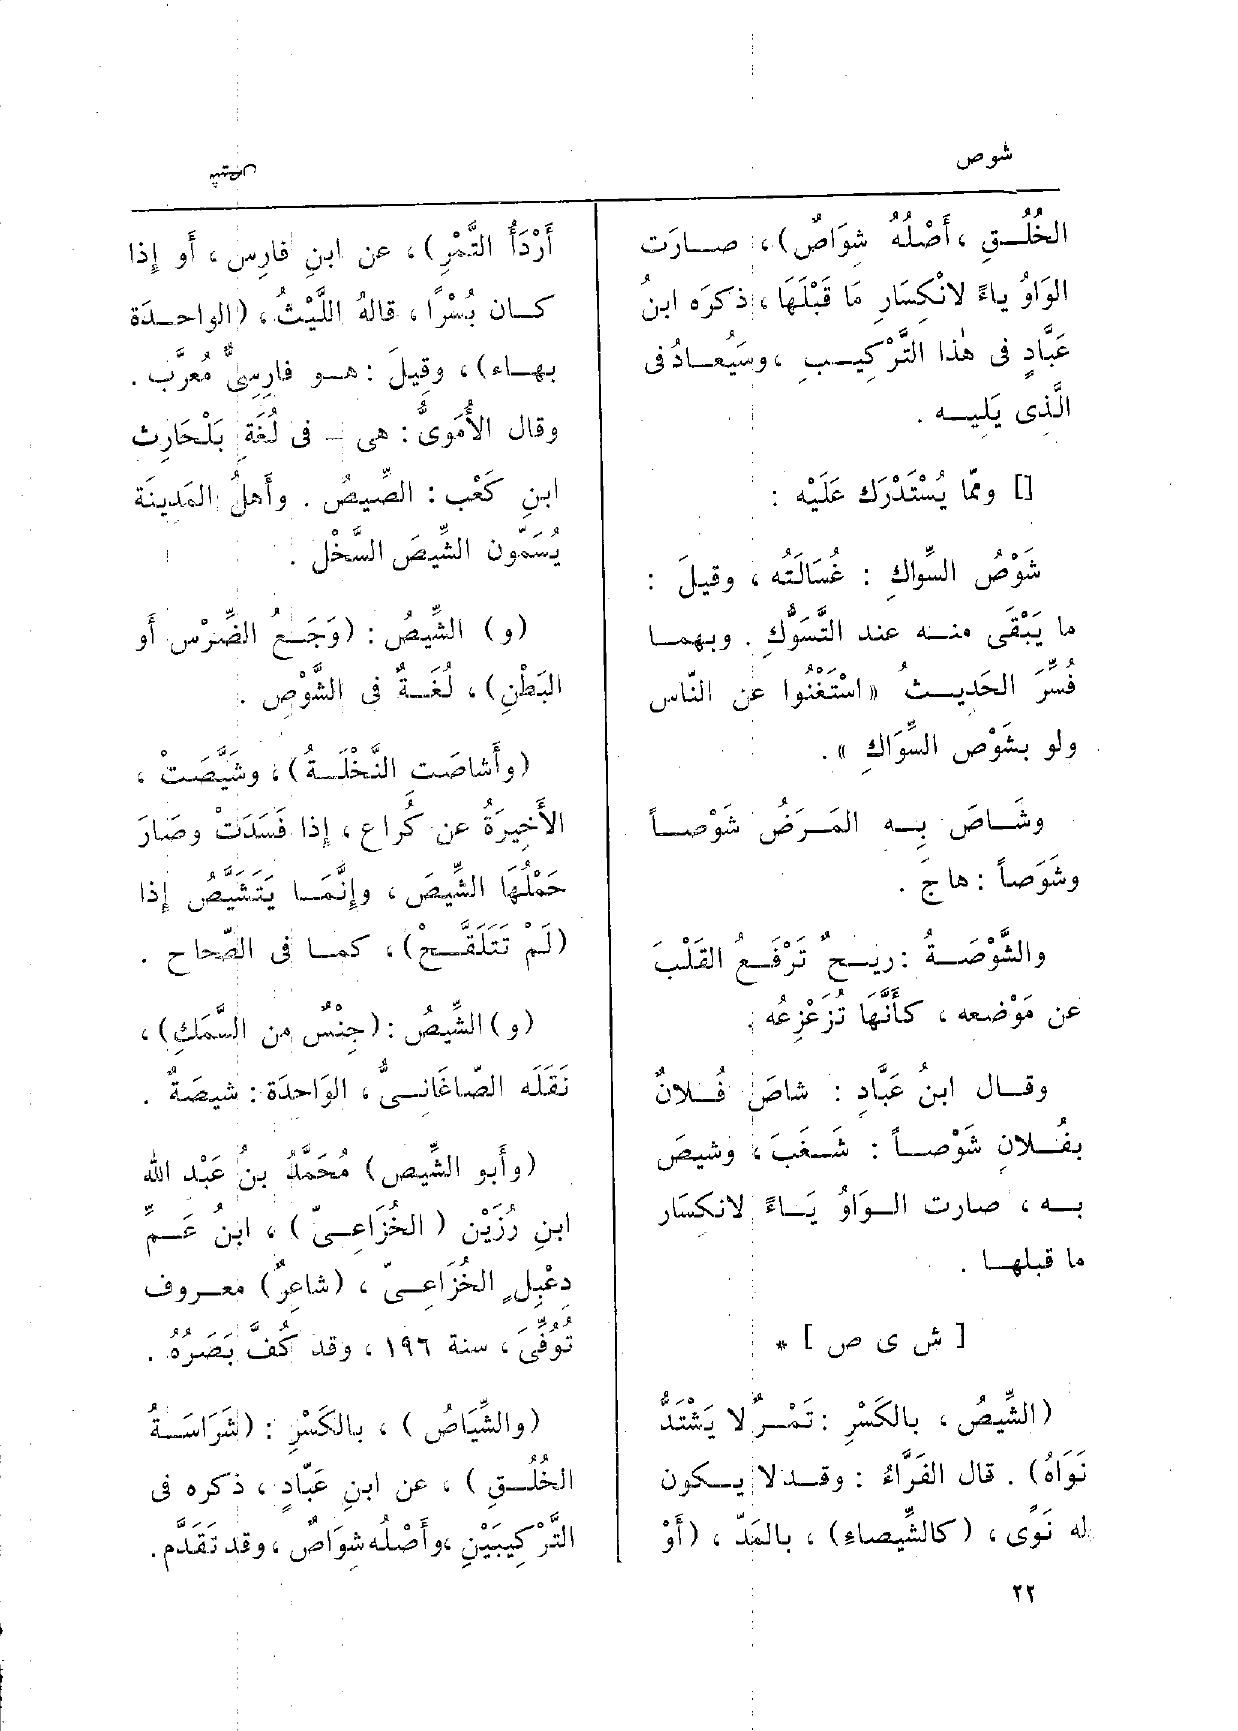 شوص
شيص
الخُلُـقِ ، أَصْلُهُ شِوَاصٌ) ، صـارَت
الوَاوُ ياءً لانْكِسَارِ مَا قَبْلَهَا ، ذكرَه ابنُ
عَبَّادٍ فى هٰذا التَّرْكِيـبِ ، وسَيُعـادُ فى
الَّذى يَلِيـه .
[] وممّا يُسْتَدْرَك عَلَيْه :
شَوْصُ السِّواكِ : غُسَالَتُه ، وقِيلَ :
ما يَبْقَى منـه عند التَّسَوُّكِ . وبهمـا
فُسِّرَ الحَديـثُ « اسْتَغْنُوا عن النّاسِ
ولو بشَوْصِ السِّوَاكِ » .
وشَـاصَ بِـه المَـرَضُ شَوْصـاً
وشَوَصاً : هاجَ .
والشَّوْصَـةُ : ريـحٌ تَرْفَـعُ القَلْبَ
عن مَوْضعه ، كأَنَّهَا تُزَعْزِعُه .
وقـال ابنُ عَبَّادٍ : شاصَ فُـلانٌ
بفُـلانٍ شَوْصـاً : شَـغَبَ ، وشِيصَ
بـه ، صارت الـوَاوُ يَـاءً لانكسَار
ما قبلهـا .
[ ش ى ص ] *
(الشِّيصُ ، بالكَسْرِ : تَمْـرٌ لا يَشْتَدُّ
نَوَاهُ) . قال الفَرَّاءُ : وقـد لا يـكون
له نَوًى ، (كالشِّيصاءِ) ، بالمَدّ ، (أَوْ
أَرْدَأُ التَّمْرِ) ، عن ابنِ فارِس ، أَو إِذا
كـان بُسْرًا ، قالهُ اللَّيْثُ ، (الواحـدَة
بهـاء) ، وقِيلَ : هـو فارِسِىٌّ مُعَرَّب .
وقال الأُمَوِىُّ : هى - فى لُغَةِ بَلْحَارِث
ابنِ كَعْب : الصِّيصُ . وأَهلُ المَدينَة
يُسَمُّون الشِّيصَ السَّخْلَ .
(و) الشِّيصُ : (وَجَـعُ الضِّرْسِ أَو
البَطْنِ) ، لُغَـةٌ فى الشَّوْصِ .
(وأَشاصَتِ النَّخْلَـةُ) ، وشَيَّصَتْ ،
الأَخِيرَةُ عن كُرَاعٍ ، إِذا فَسَدَتْ وصَارَ
حَمْلُهَا الشِّيصَ ، وإِنَّمَـا يَتَشَيَّصُ إِذا
(لَمْ تَتَلَقَّـحْ) ، كمـا فى الصّحاح .
(و) الشِّيصُ : (جِنْسٌ من السَّمَكِ) ،
نَقَلَه الصّاغَانـىُّ ، الوَاحدَة : شيصَةٌ .
(وأَبو الشِّيصِ) مُحَمَّدُ بنُ عَبْد الله
ابنِ رُزَيْن ( الخُزَاعِـىّ ) ، ابنُ عَـمِّ
دعْبِلٍ الخُزَاعِـىّ ، (شاعِرٌ) معـروف
تُوُفِّىَ ، سنة ١٩٦ ، وقد كُفَّ بَصَرُهُ .
(والشِّيَاصُ ) ، بالكَسْرِ : (شَرَاسَـةُ
الخُلُـقِ ) ، عن ابنِ عَبّادٍ ، ذكره فى
التَّرْكِيبَيْنِ ، وأَصْلُه شِوَاصٌ ، وقد تَقَدَّم .
٢٢